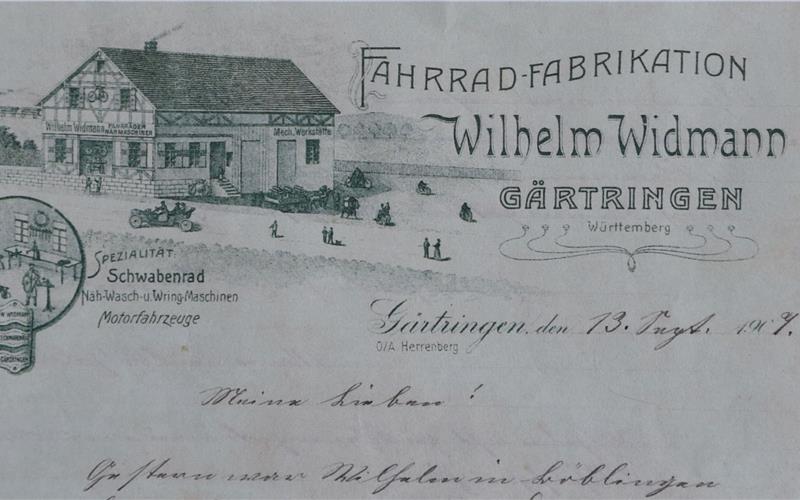 FAHRRAD-FABRIKATION
Wilhelm Widmann
GÄRTRINGEN
Württemberg
Wilhelm Widmann
FAHRRÄDER
NÄHMASCHINEN
Mech. Werkstätte
SPEZIALITÄT:
Schwabenrad
Näh-Wasch-u. Wring-Maschinen
Motorfahrzeuge
W. WIDMANN
SCHWABENRAD
GÄRTRINGEN
Gärtringen, den 13. Sept. 1909.
O/A. Herrenberg
Meine Lieben!
Gestern war Wilhelm in Böblingen